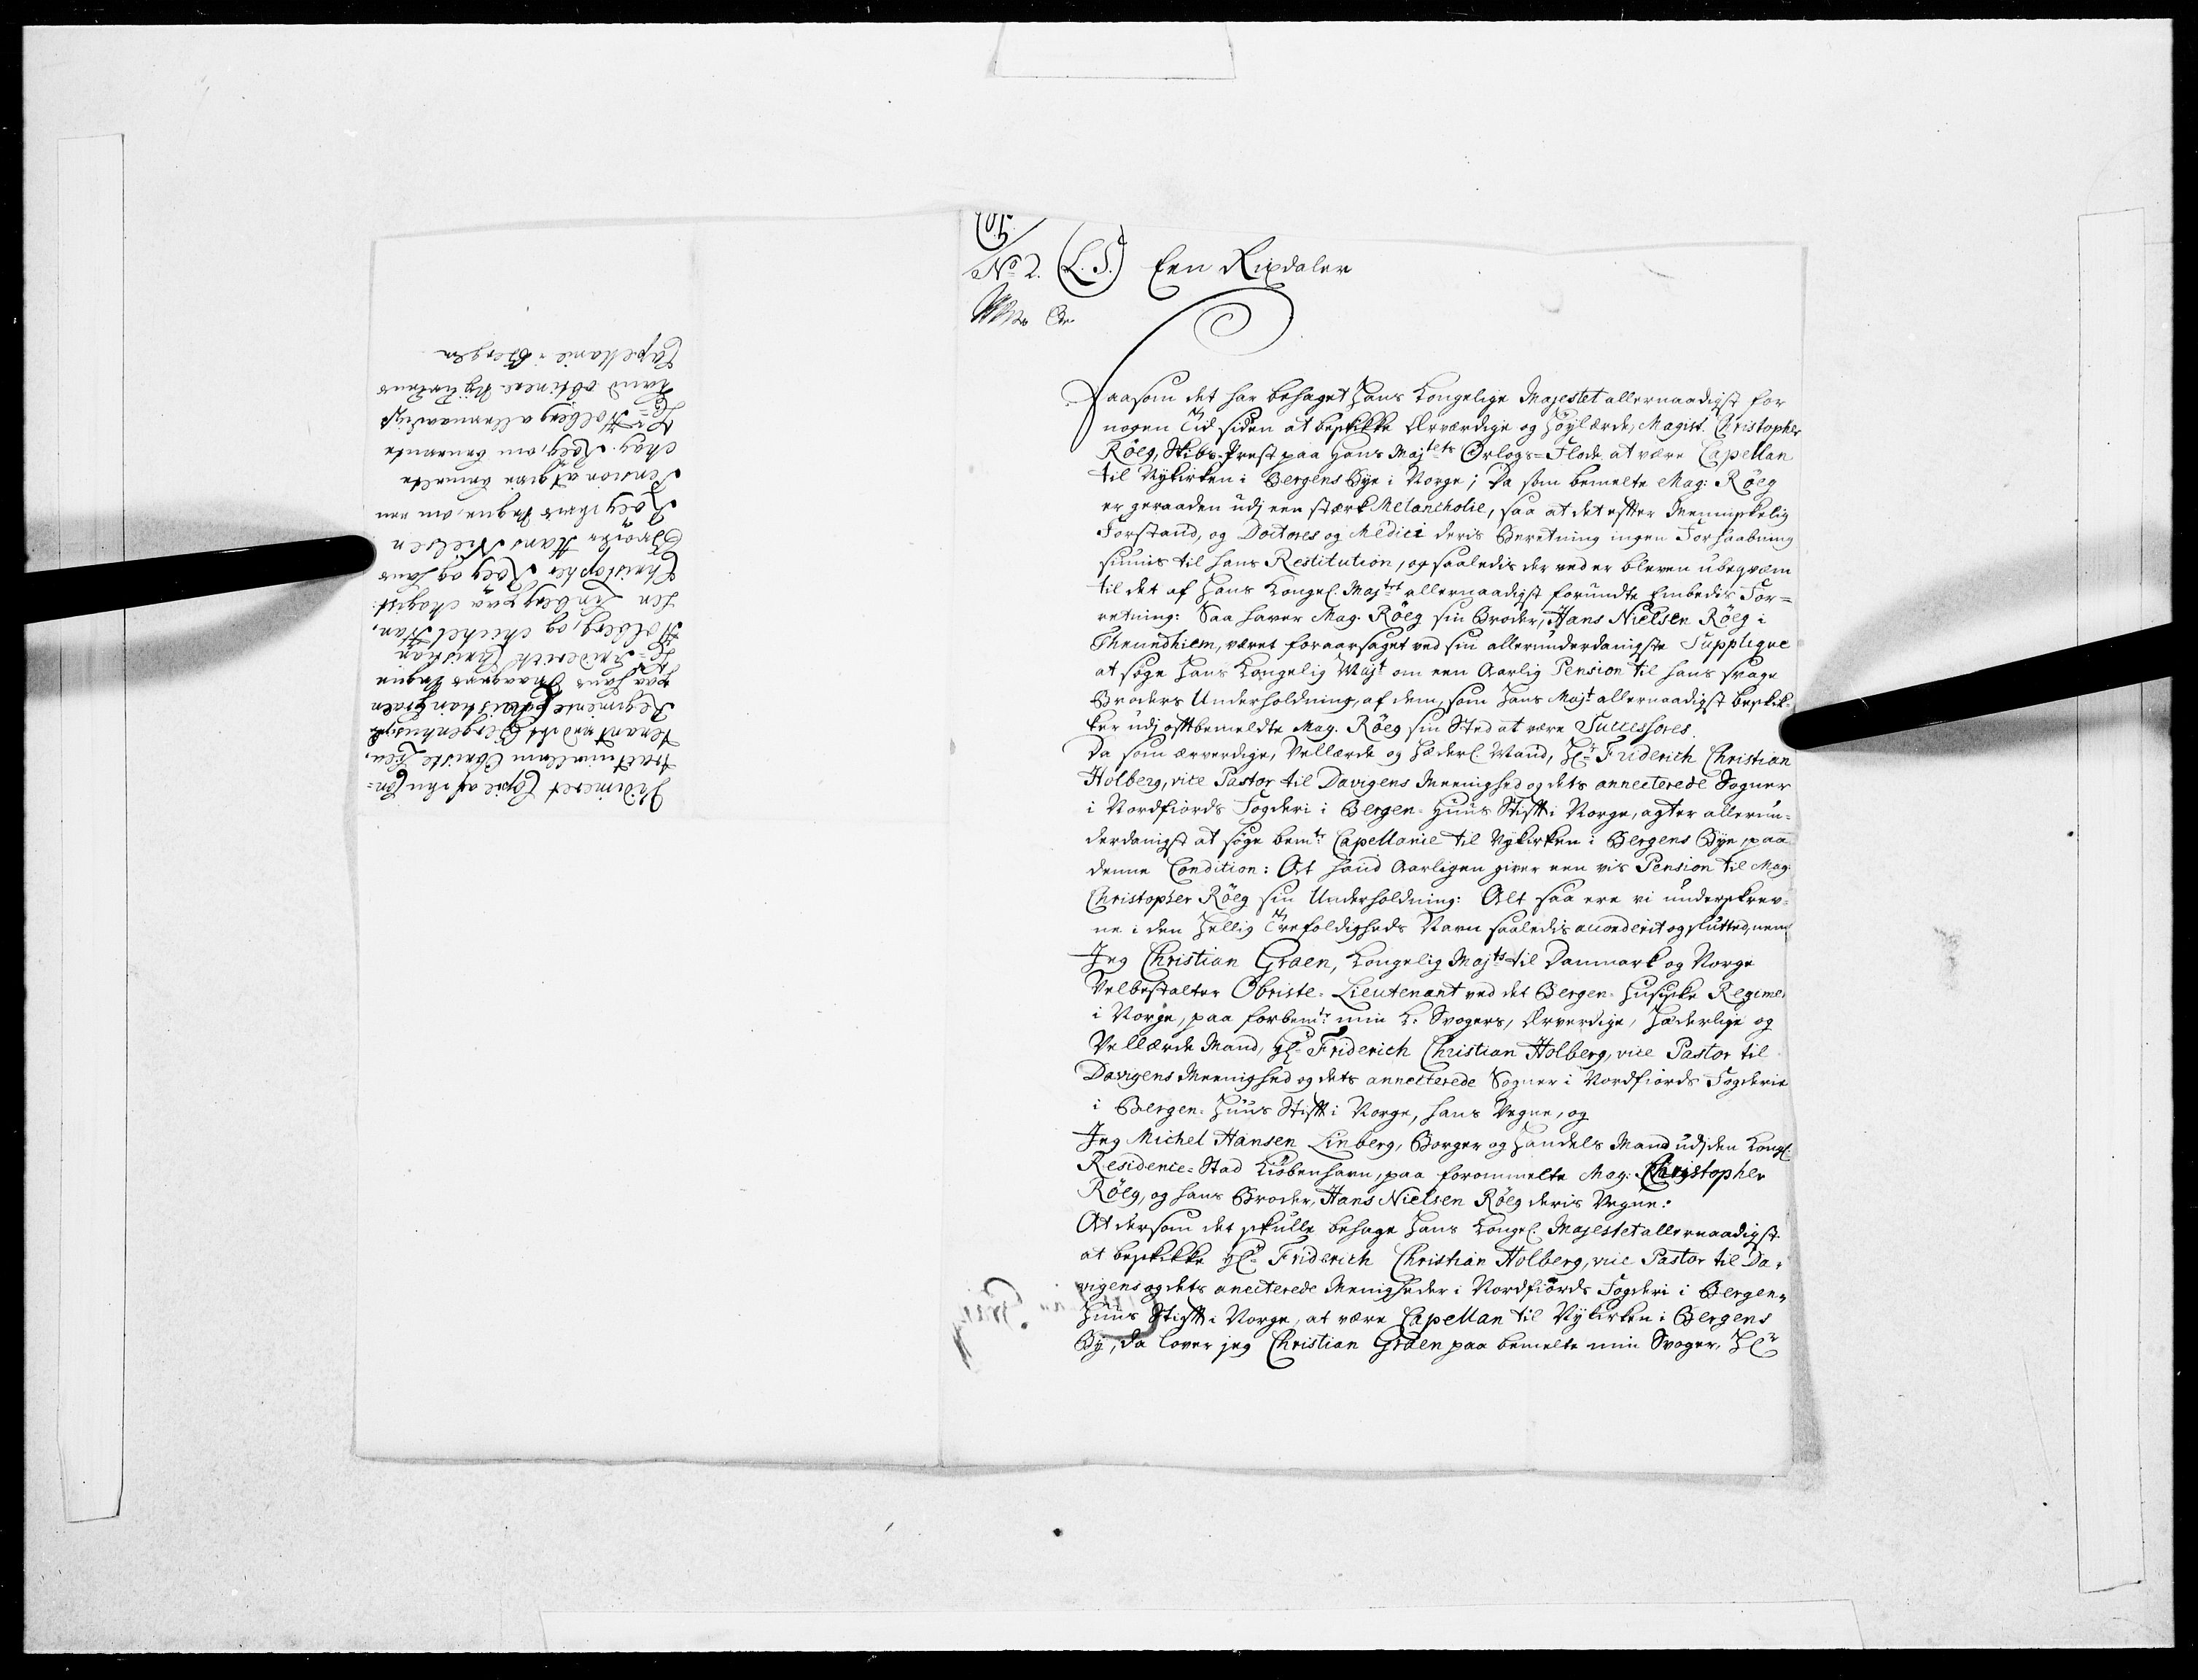 No 2. (L.S.) Een Rixdaler
Saasom det har behaget Hans Kongelige Majestet allernaadigst for
nogen Tid siden at beskikke Ærværdige og Høylærde, Magist. Christopher
Röeg, Skibs-Prest paa Hans Majtets Orlogs=Flode at være Capellan
til Nykirken i Bergens Bye i Norge; Da som bemelte Mag: Röeg
er geraaden udj een stærk Melancholie, saa at det effter Menniskelig
Forstand, og Doctores og Medici deris Beretning ingen Forhaabning
siunis til hans Restitution, og saaledis der ved er bleven ubeqvem
til det af Hans Kongel. Majtet allernaadigst forundte Embedis For=
retning: Saa haver Mag. Röeg sin Broder, Hans Nielsen Röeg i
Thrundhiem, været foraarsaget ved sin allerunderdanigste Supplique
at søge Hans Kongelig Mayt om een Aarlig Pension til hans svage
Broders Underholdning, af dem, som Hans Mayt allernaadigst beskik=
ker udj offtbemeldte Mag. Röeg sin Sted at være Successores.
Da som ærverdige, Vellærde og Hæderl. Mand, Hr Friderich Christian
Holberg, vice Pastor til Davigens Meenighed og dets annecterede Sogner
i Nordfiords Fogderi i Bergen-Huus Stifft i Norge, agter allerun=
derdanigst at søge bemte Capellanie til Nykirken i Bergens Bye, paa
denne Condition: At hand Aarligen giver een vis Pension til Mag:
Christopher Röeg sin Underholdning: Alt saa ere vi underskrev=
ne i den Hellig Trefoldigheds Navn saaledis accorderit og slutted, neml
Jeg Christian Graen, Kongelig Mayts til Danmark og Norge
Velbestalter Obriste-Lieutenant ved det Bergen-Husiske Regime
i Norge, paa forbemte min K. Svogers, Ærverdige, Hæderlige og
Vellærde Mand, Hr Friderich Christian Holberg, vice Pastor til
Davigens Meenighed og dets annecterede Sogner i Nordfiords Fogderie
i Bergen-Huus Stifft i Norge, hans Vegne, og
Jeg Michel Hansen Linberg, Borger og Handels Mand udj den Kongl:
Residence-Stad Kiöbenhavn, paa forommelte Mag: Christopher
Röeg, og hans Broder, Hans Nielsen Röeg deris Vegne:
At dersom det skulle behage Hans Kongel. Majestet allernaadigst
at beskikke Hr Friderich Christian Holberg, vice Pastor til Da=
vigens og dets anecterede Menigheder i Nordfiords Fogderi i Bergen=
Huus Stifft i Norge, at være Capellan til Nykirken i Bergens
By, da lover jeg Christian Graen paa bemelte min Svoger, Hr
Vidimeret Copie af den Con=
tract imellem Obriste Lieu,
tenant ved det Bergenhusiske
Regimente Christian Graen
paa hans Svogers Vegne
Hr Friderich Christian
Holberg, og Michel Han,
sen Linberg paa Magist:
Christopher Röeg og hans
Broder Hans Nielsen
Röeg deris Vegne, om een
Pension at give bemelte
Mag. Röeg, om benevnte
Hr Holberg allernaadigst
kand obtinere Nykirkens
Capellanie i Bergen